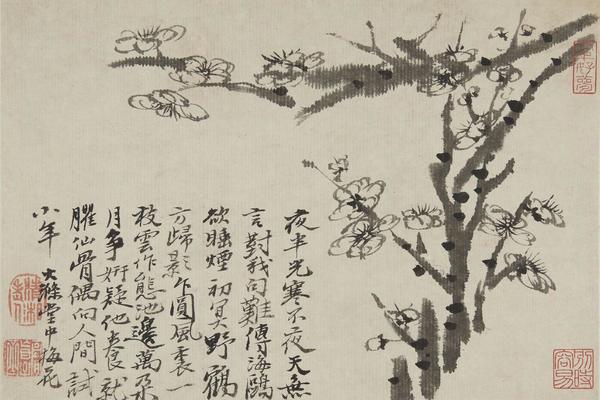 夜半光寒不夜天無
言對我句難傳海鷗
欲睡煙初冥野鶴
方歸影乍圓風裊一
枝雲作態池邊萬朵
月爭妍疑他養就
臞仙骨偶向人間試
小年 大滌堂中梅花
別時容易